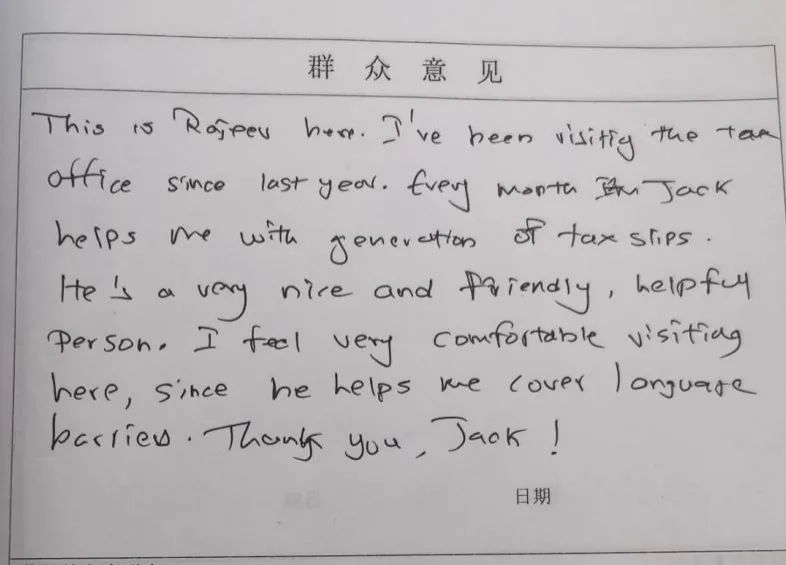 群众意见
This is Rajeev here. I've been visitig the tax
office since last year. Every month Jack
helps me with generation of tax slips.
He's a very nice and friendly, helpful
Person. I feel very comfortable visiting
here, since he helps me cover language
barriers. Thank you, Jack!
日期